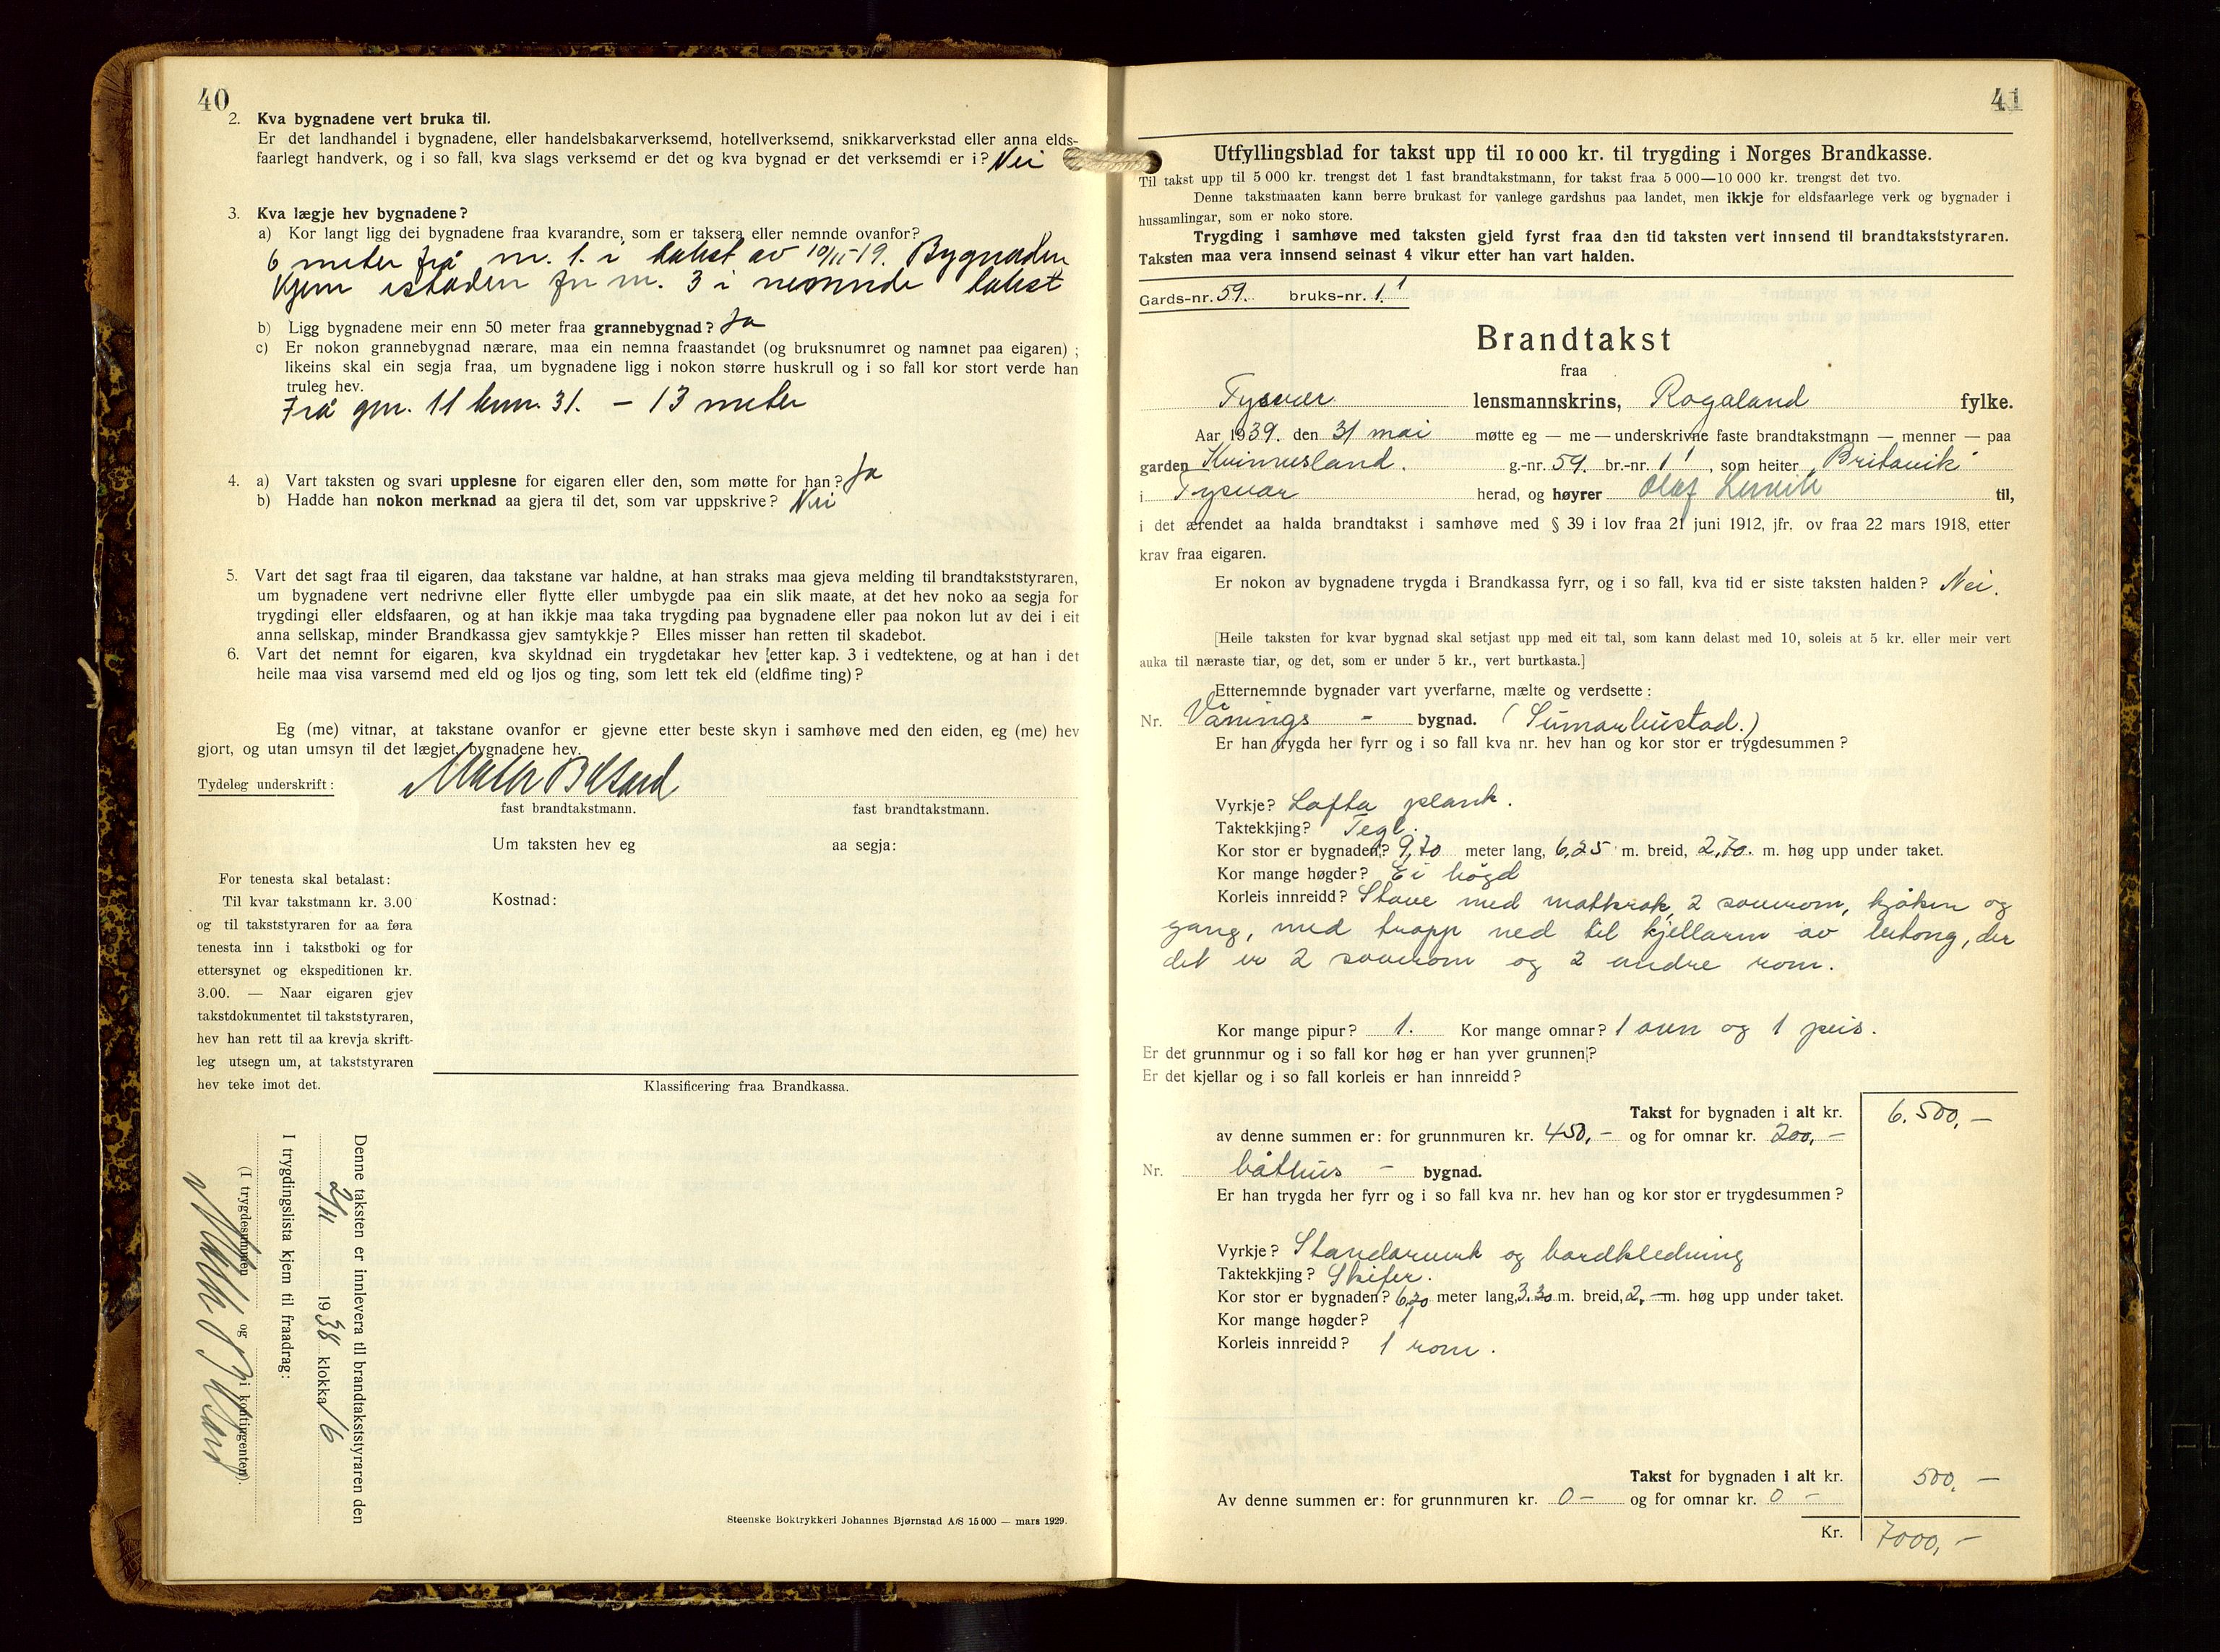 40
2. Kva bygnadene vert bruka til.
Er det landhandel i bygnadene, eller handelsbakarverksemd, hotellverksemd, snikkarverkstad eller anna elds-
faarlegt handverk, og i so fall, kva slags verksemd er det og kva bygnad er det verksemdi er i? Nei
3. Kva lægje hev bygnadene?
a) Kor langt ligg dei bygnadene fraa kvarandre, som er taksera eller nemnde ovanfor?
6 meter frå nr. 1. i takst av 10/11-19. Bygnaden
kjem istaden for nr. 3 i nemnde takst
b) Ligg bygnadene meir enn 50 meter fraa grannebygnad? Ja
c) Er nokon grannebygnad nærare, maa ein nemna fraastandet (og bruksnumret og namnet paa eigaren) ;
likeins skal ein segja fraa, um bygnadene ligg i nokon større huskrull og i so fall kor stort verde han
truleg hev.
Frå gnr. 11 bnr. 31. - 13 meter
4. a) Vart taksten og svari upplesne for eigaren eller den, som møtte for han? Ja
b) Hadde han nokon merknad aa gjera til det, som var uppskrive? Nei
5. Vart det sagt fraa til eigaren, daa takstane var haldne, at han straks maa gjeva melding til brandtakststyraren,
um bygnadene vert nedrivne eller flytte eller umbygde paa ein slik maate, at det hev noko aa segja for
trygdingi eller eldsfaaren, og at han ikkje maa taka trygding paa bygnadene eller paa nokon lut av dei i eit
anna sellskap, minder Brandkassa gjev samtykkje? Elles misser han retten til skadebot.
6. Vart det nemnt for eigaren, kva skyldnad ein trygdetakar hev [etter kap. 3 i vedtektene, og at han i det
heile maa visa varsemd med eld og ljos og ting, som lett tek eld (eldfime ting)?
Eg (me) vitnar, at takstane ovanfor er gjevne etter beste skyn i samhøve med den eiden, eg (me) hev
gjort, og utan umsyn til det lægjet, bygnadene hev.
Tydeleg underskrift:
fast brandtakstmann. fast brandtakstmann.
Um taksten hev eg aa segja:
For tenesta skal betalast:
Til kvar takstmann kr. 3.00
og til takststyraren for aa føra
tenesta inn i takstboki og for
ettersynet og ekspeditionen kr.
3.00. — Naar eigaren gjev
takstdokumentet til takststyraren,
hev han rett til aa krevja skrift-
leg utsegn um, at takststyraren
hev teke imot det.
Kostnad:
Klassificering fraa Brandkassa.
Denne taksten er innlevera til brandtakststyraren den
2/11 1938 klokka 16
I trygdingslista kjem til fraadrag:
(I trygdesummen og i kontingenten).
Steenske Boktrykkeri Johannes Bjørnstad A/S 15 000 — mars 1929.
41
Utfyllingsblad for takst upp til 10 000 kr. til trygding i Norges Brandkasse.
Til takst upp til 5 000 kr. trengst det 1 fast brandtakstmann, for takst fraa 5 000—10 000 kr. trengst det tvo.
Denne takstmaaten kann berre brukast for vanlege gardshus paa landet, men ikkje for eldsfaarlege verk og bygnader i
hussamlingar, som er noko store.
Trygding i samhøve med taksten gjeld fyrst fraa den tid taksten vert innsend til brandtakststyraren.
Taksten maa vera innsend seinast 4 vikur etter han vart halden.
Gards-nr. 59. bruks-nr. 1.1
Brandtakst
fraa
Tysvær lensmannskrins, Rogaland fylke.
Aar 1939. den 31 mai møtte eg — me — underskrivne faste brandtakstmann — menner — paa
garden Kvinnesland. g.-nr. 59. br.-nr. 11, som heiter Britavik
i Tysvær herad, og høyrer Olaf til,
i det ærendet aa halda brandtakst i samhøve med § 39 i lov fraa 21 juni 1912, jfr. ov fraa 22 mars 1918, etter
krav fraa eigaren.
Er nokon av bygnadene trygda i Brandkassa fyrr, og i so fall, kva tid er siste taksten halden? Nei.
[Heile taksten for kvar bygnad skal setjast upp med eit tal, som kann delast med 10, soleis at 5 kr. eller meir vert
auka til næraste tiar, og det, som er under 5 kr., vert burtkasta.]
Etternemnde bygnader vart yverfarne, mælte og verdsette :
Nr. Vånings - bygnad. (Sumarbustad.)
Er han trygda her fyrr og i so fall kva nr. hev han og kor stor er trygdesummen ?
Vyrkje? Lafta plank.
Taktekkjing? Tegl.
Kor stor er bygnaden? 9,70 meter lang, 6,25 m. breid, 2,70. m. høg upp under taket.
Kor mange høgder? Ei högd
Korleis innreidd? Stove med matkrok, 2 soverom, kjøken og
gang, med trapp ned til kjellaren av betong, der
det er 2 soverom og 2 andre rom.
Kor mange pipur? 1. Kor mange omnar? 1 ovn og 1 peis.
Er det grunnmur og i so fall kor høg er han yver grunnen?
Er det kjellar og i so fall korleis er han innreidd?
Takst for bygnaden i alt kr. 6.500,-
av denne summen er: for grunnmuren kr. 450,- og for omnar kr. 200,-
Nr. båthus - bygnad.
Er han trygda her fyrr og i so fall kva nr. hev han og kor stor er trygdesummen ?
Vyrkje? Standarverk og bordkledning
Taktekkjing? Skifer.
Kor stor er bygnaden? 6,20 meter lang, 3,30 m. breid, 2,- m. høg upp under taket.
Kor mange høgder? 1
Korleis innreidd? 1 rom.
Takst for bygnaden i alt kr. 500,-
Av denne summen er: for grunnmuren kr. 0 - og for omnar kr. 0 -
Kr. 7000,-